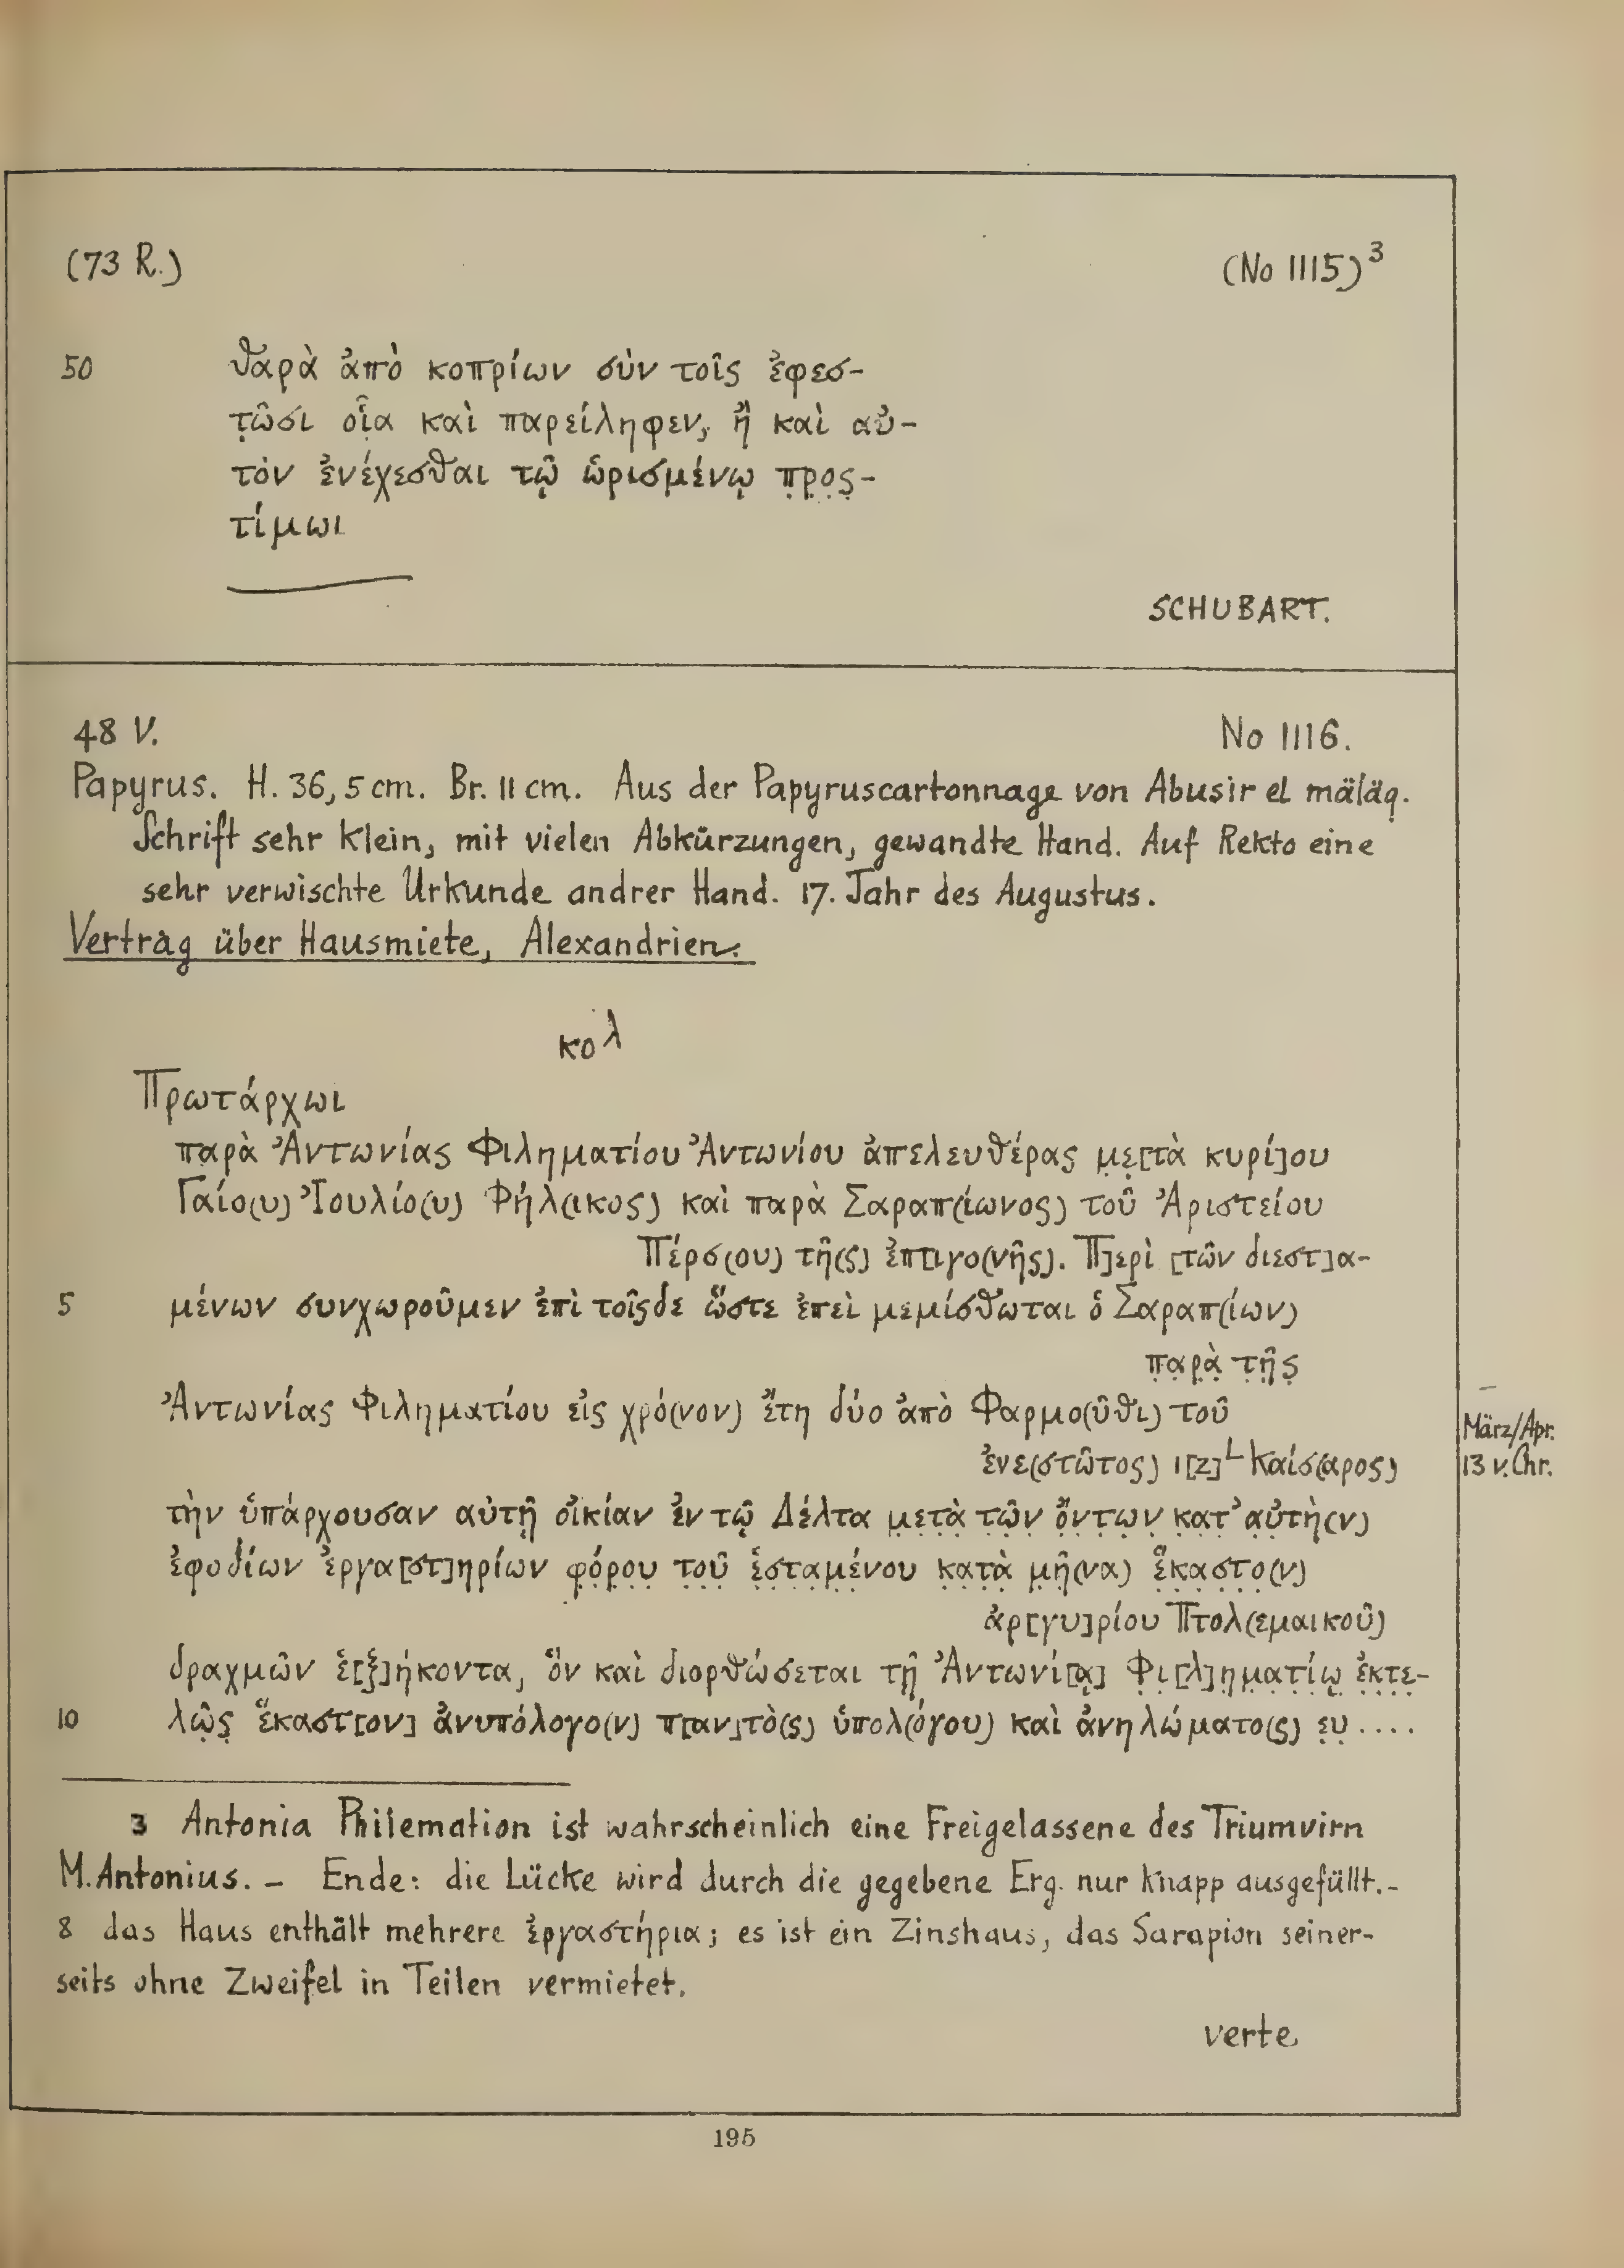 (73 R.)
(No 1115)³
50 θαρὰ ἀπὸ κοπρίων σὺν τοῖς ἐφεσ-
τ̣ῶσι οἷ̣α καὶ παρείληφεν, ἢ̣ καὶ αὐ-
τὸν ἐνέχεσθαι τῷ ὡρισμένῳ π̣ρ̣ο̣ς̣-
τίμωι
SCHUBART.
48 V.
No 1116.
Papyrus. H. 36,5 cm. Br. 11 cm. Aus der Papyruscartonnage von Abusir el mäläq.
Schrift sehr klein, mit vielen Abkürzungen, gewandte Hand. Auf Rekto eine
sehr verwischte Urkunde andrer Hand. 17. Jahr des Augustus.
Vertrag über Hausmiete, Alexandrien.
κολ
Πρωτάρχωι
παρὰ Ἀντωνίας Φιληματίου Ἀντωνίου ἀπελευθέρας μ̣ε̣[τὰ κυρί]ου
Γαίο(υ) Ἰουλίο(υ) Φήλ(ικος) καὶ παρὰ Σαραπ(ίωνος) τοῦ Ἀριστείου
Πέρσ(ου) τῆ(ς) ἐπ[ιγο(νῆς). Π]ερὶ [τῶν διεστ]α-
5 μένων συνχωροῦμεν ἐπὶ τοῖςδε ὥστε ἐπεὶ μεμίσθωται ὁ Σαραπ(ίων)
π̣α̣ρ̣ὰ̣ τ̣ῆ̣ς̣
Ἀντωνίας Φιληματίου εἰς χρό(νον) ἔτη δύο ἀπὸ Φαρμο(ῦθι) τοῦ
ἐνε(στῶτος) ι[ζ]└ Καίσ(αρος)
März/Apr.
13 v. Chr.
τὴν ὑπάρχουσαν αὐτῇ οἰκίαν ἐν τῷ Δέλτα μ̣ε̣τ̣ὰ̣ τ̣ῶ̣ν̣ ὄ̣ν̣τ̣ω̣ν̣ κ̣α̣τ̣’ α̣ὐ̣τ̣ὴ̣(ν)
ἐφοδίων ἐργα[στ]ηρίων φ̣ό̣ρ̣ο̣υ̣ τ̣ο̣ῦ̣ ἑ̣σ̣τ̣α̣μ̣έ̣νου κ̣α̣τ̣ὰ̣ μ̣ῆ̣(να) ἕ̣κ̣α̣σ̣τ̣ο̣(ν)
ἀρ[γυ]ρίου Πτολ(εμαικοῦ)
δραχμῶν ἑ[ξ]ήκοντα, ὃν καὶ διορθώσεται τῇ Ἀντωνί[ᾳ] Φ̣ι̣[λ]η̣μ̣α̣τ̣ί̣ῳ̣ ἐ̣κ̣τ̣ε̣-
10 λῶ̣ς̣ ἕκαστ[ον] ἀνυπόλογο(ν) π[αν]τὸ(ς) ὑπολ(όγου) καὶ ἀνηλώματο(ς) ε̣υ̣....
3 Antonia Philemation ist wahrscheinlich eine Freigelassene des Triumvirn
M. Antonius. – Ende: die Lücke wird durch die gegebene Erg. nur knapp ausgefüllt.-
8 das Haus enthält mehrere ἐργαστήρια; es ist ein Zinshaus, das Sarapion seiner-
seits ohne Zweifel in Teilen vermietet.
verte
195